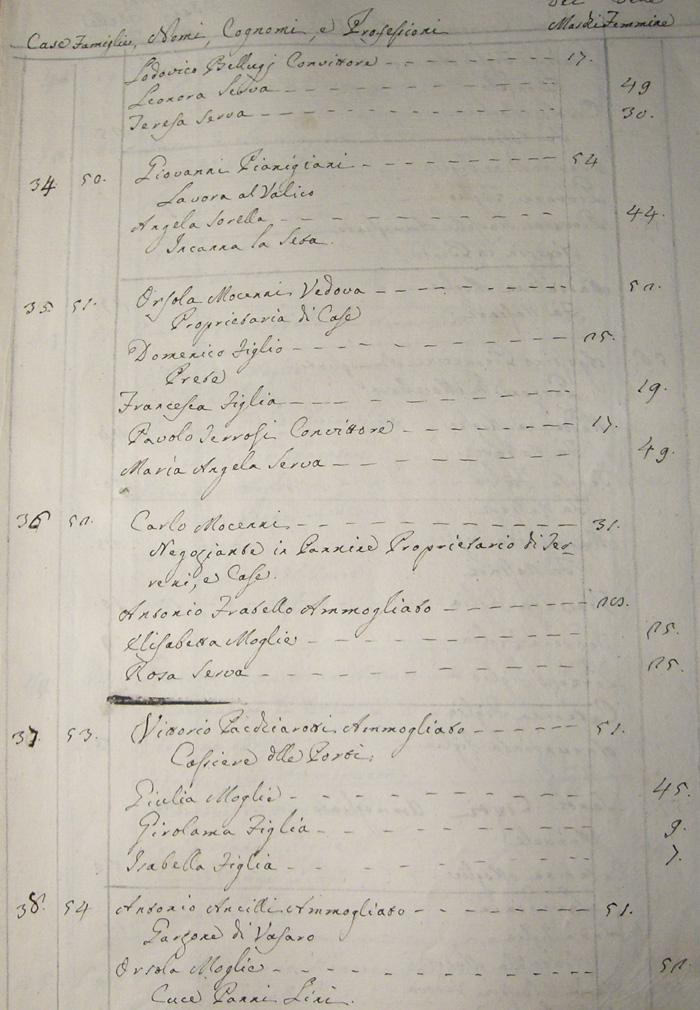 Case Famiglie, Nomi, Cognomi, e Professioni Maschi Femmine
Lodovico Bellugi Convittore 17.
Leonora Serva 49
Teresa Serva 30.
34 50. Giovanni Pianigiani 54
Lavora al Valico
Angela Sorella 44.
Incanna la Seta.
35 51. Orsola Mocenni Vedova 52.
Proprietaria di Case
Domenico Figlio 25.
Prete
Francesca Figlia 19.
Pavolo Terrosi Convittore 17.
Maria Angela Serva 49.
36 52. Carlo Mocenni 31.
Negoziante in Pannine Proprietario di Ter-
reni, e Case.
Antonio Fratello Ammogliato
Elisabetta Moglie 25.
Rosa Serva 25.
37 53. Vittorio Pacchiarotti Ammogliato 51.
Cassiere delle Porte.
Giulia Moglie 45.
Girolama Figlia 9.
Isabella Figlia 7.
38. 54 Antonio Ancilli Ammogliato 51.
Garzone di Vasaro
Orsola Moglie 52.
Cuce Panni Lini.